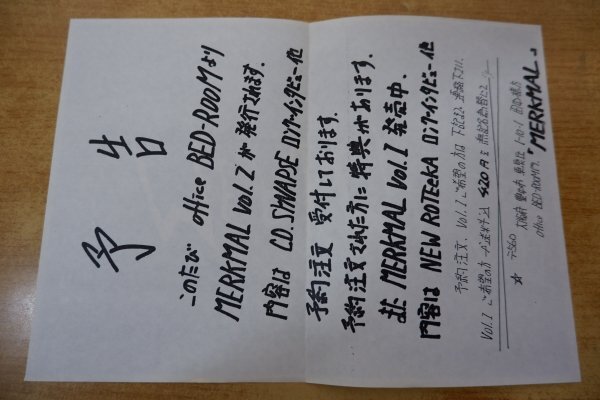 予告
このたび office BED-ROOMより
MERKMAL Vol.2が発行されます.
内容は CD.SHVAPSE ロングインタビュー他
予約注文 受付しております.
予約注文された方に特典があります.
また MERKMAL Vol.1 発売中.
内容は NEW ROTEeKA ロングインタビュー他
予約注文、Vol.1ご希望の方は 下記まで連絡下さい.
Vol.1 ご希望の方 420円を
☆ 〒560
大阪府豊中市
office BED-ROOM内
"MERKMAL"